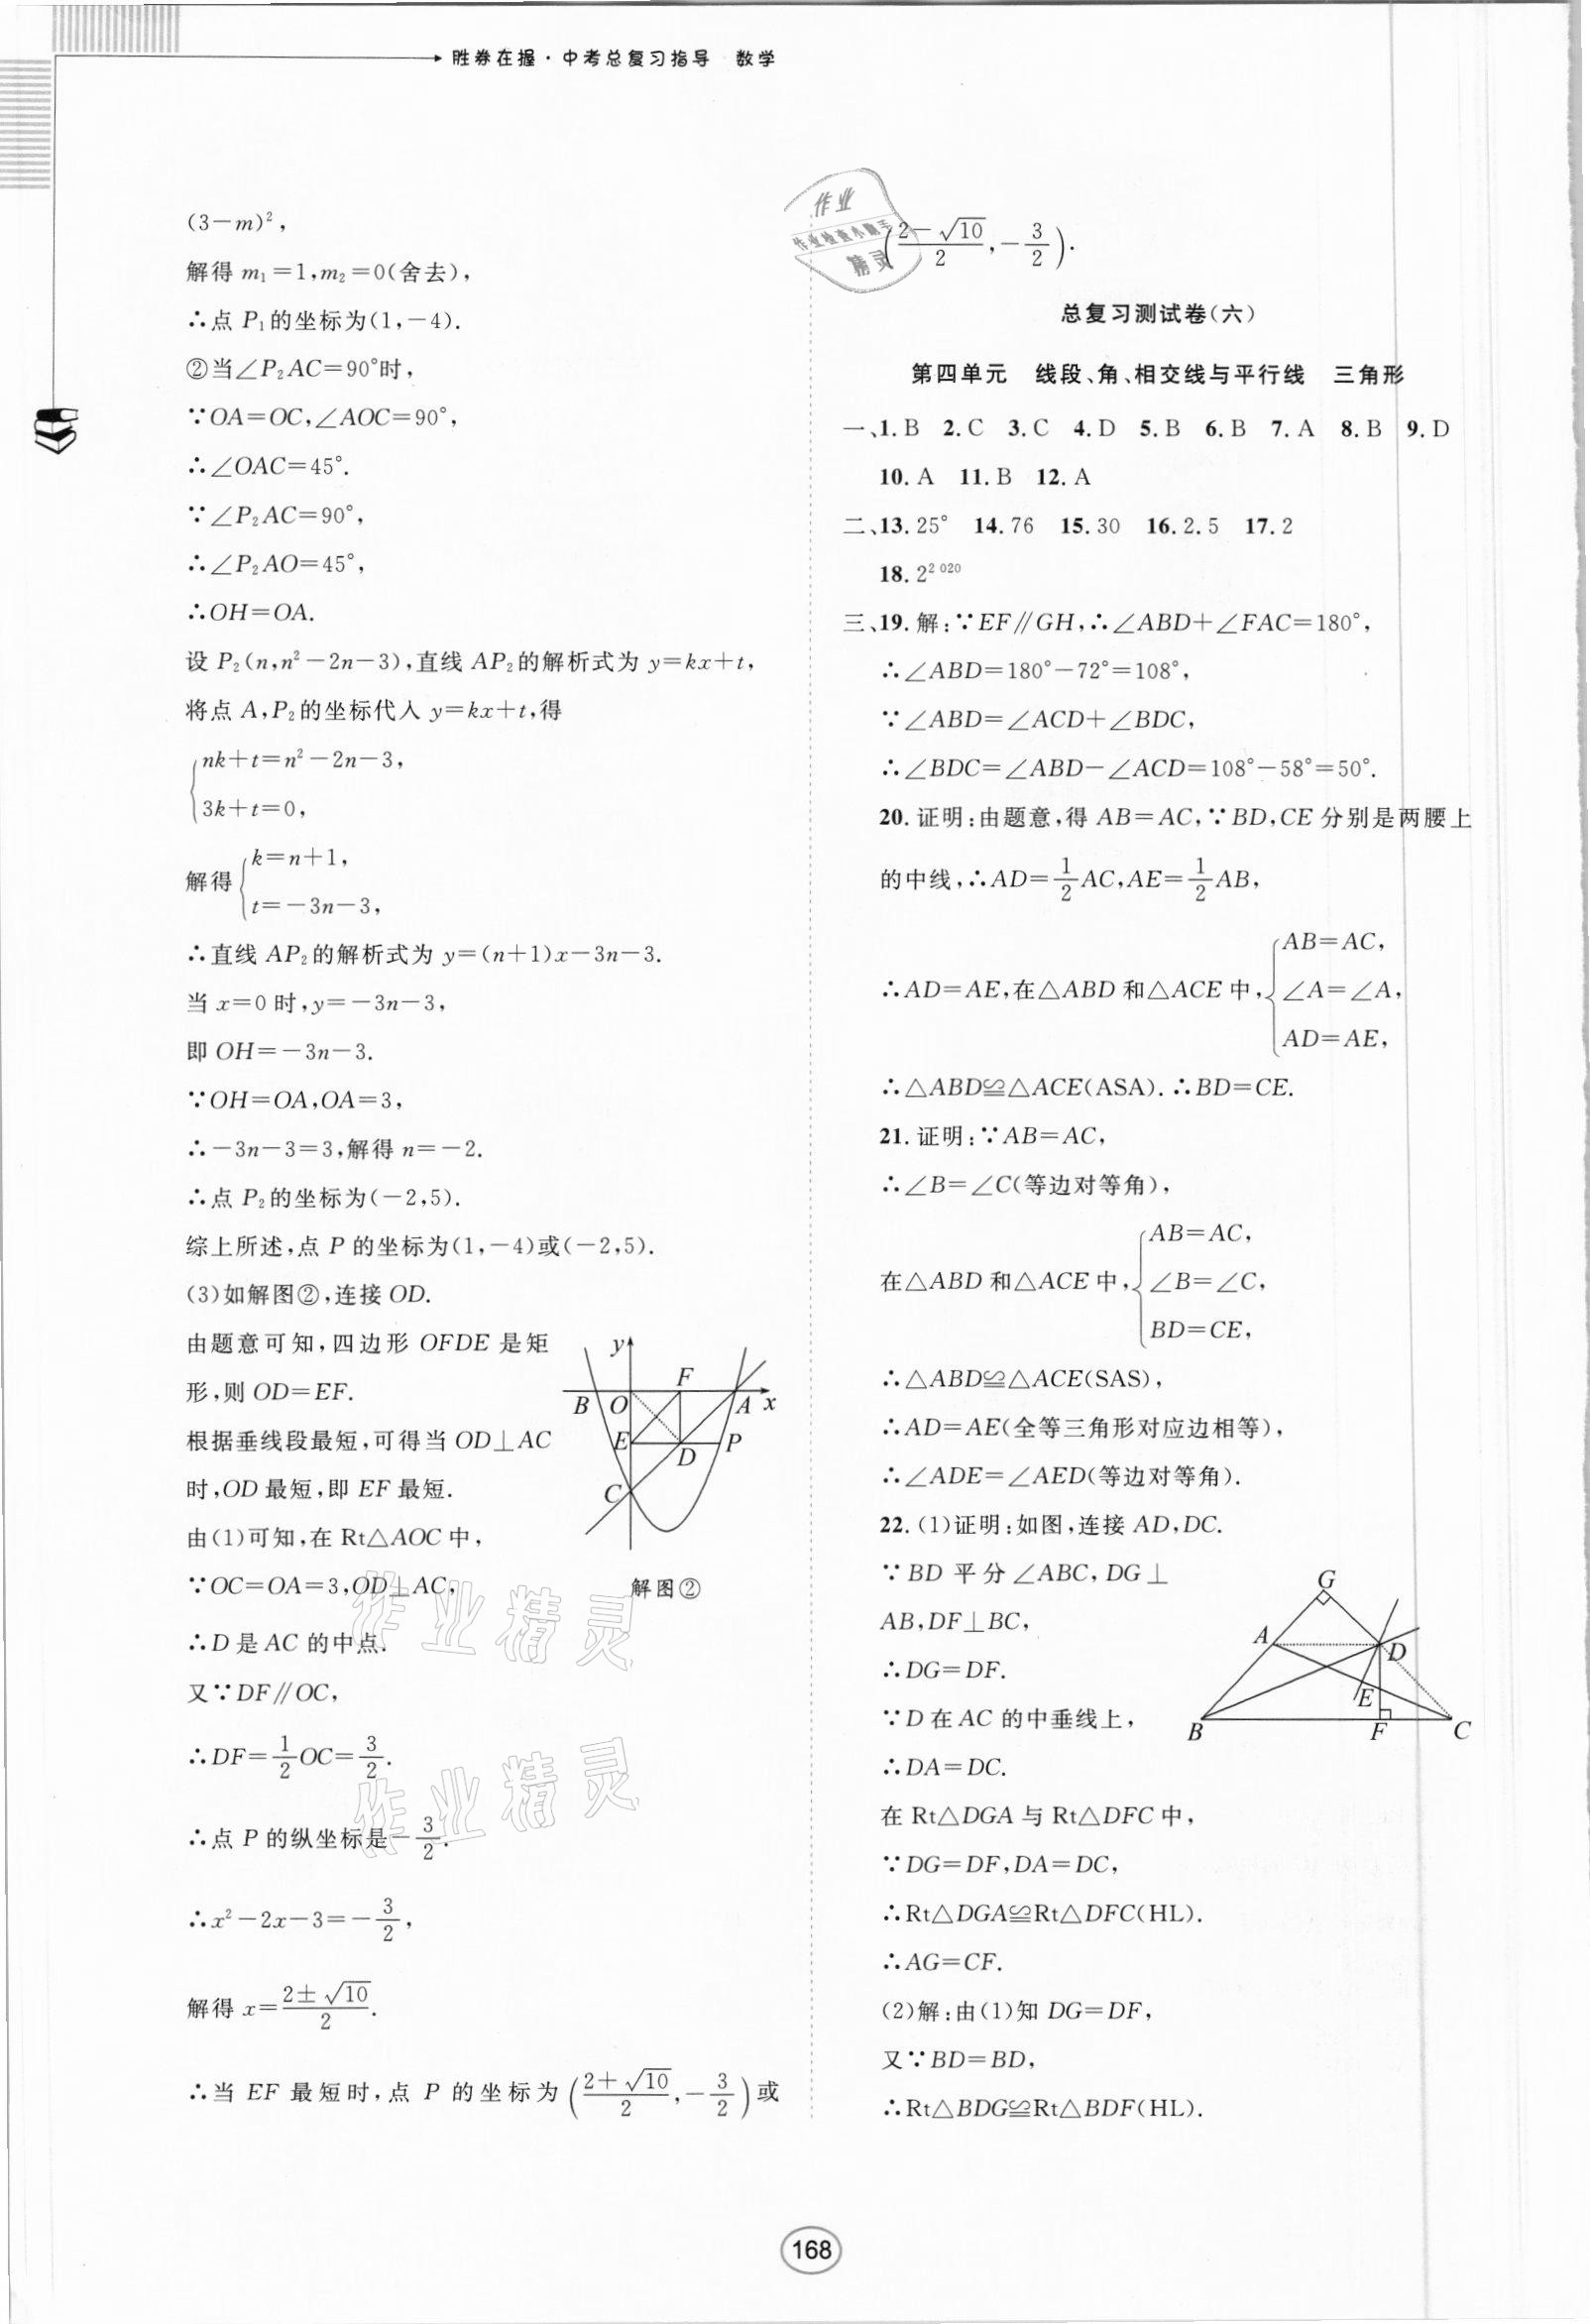 胜券在握·中考总复习指导 数学
(3-m)²,
解得 m₁=1,m₂=0(舍去),
∴点 P₁的坐标为(1,-4).
②当∠P₂AC=90°时,
∵OA=OC,∠AOC=90°,
∴∠OAC=45°.
∵∠P₂AC=90°,
∴∠P₂AO=45°,
∴OH=OA.
设 P₂(n,n²-2n-3),直线 AP₂的解析式为 y=kx+t,
将点 A,P₂的坐标代入 y=kx+t,得
{nk+t=n²-2n-3,
3k+t=0,
解得{k=n+1,
t=-3n-3,
∴直线 AP₂的解析式为 y=(n+1)x-3n-3.
当 x=0 时,y=-3n-3,
即 OH=-3n-3.
∵OH=OA,OA=3,
∴-3n-3=3,解得 n=-2.
∴点 P₂的坐标为(-2,5).
综上所述,点 P 的坐标为(1,-4)或(-2,5).
(3)如解图②,连接 OD.
由题意可知,四边形 OFDE 是矩
形,则 OD=EF.
根据垂线段最短,可得当 OD⊥AC
时,OD 最短,即 EF 最短.
由(1)可知,在 Rt△AOC 中,
∵OC=OA=3,OD⊥AC,
∴D 是 AC 的中点.
又∵DF∥OC,
∴DF=1/2 OC=3/2.
∴点 P 的纵坐标是-3/2.
∴x²-2x-3=-3/2,
解得 x=(2±√10)/2.
∴当 EF 最短时,点 P 的坐标为((2+√10)/2,-3/2)或
y
F
B O A x
E D P
C
解图②
作业精灵
作业精灵
作业
作业检查小助手
精灵
((2-√10)/2,-3/2).
总复习测试卷(六)
第四单元 线段、角、相交线与平行线 三角形
一、1. B 2. C 3. C 4. D 5. B 6. B 7. A 8. B 9. D
10. A 11. B 12. A
二、13. 25° 14. 76 15. 30 16. 2.5 17. 2
18. 2^2 020
三、19. 解:∵EF∥GH,∴∠ABD+∠FAC=180°,
∴∠ABD=180°-72°=108°,
∵∠ABD=∠ACD+∠BDC,
∴∠BDC=∠ABD-∠ACD=108°-58°=50°.
20. 证明:由题意,得 AB=AC,∵BD,CE 分别是两腰上
的中线,∴AD=1/2 AC,AE=1/2 AB,
∴AD=AE,在△ABD 和△ACE 中,{AB=AC,
∠A=∠A,
AD=AE,
∴△ABD≌△ACE(ASA).∴BD=CE.
21. 证明:∵AB=AC,
∴∠B=∠C(等边对等角),
在△ABD 和△ACE 中,{AB=AC,
∠B=∠C,
BD=CE,
∴△ABD≌△ACE(SAS),
∴AD=AE(全等三角形对应边相等),
∴∠ADE=∠AED(等边对等角).
22. (1)证明:如图,连接 AD,DC.
∵BD 平分∠ABC,DG⊥
AB,DF⊥BC,
∴DG=DF.
∵D 在 AC 的中垂线上,
∴DA=DC.
在 Rt△DGA 与 Rt△DFC 中,
∵DG=DF,DA=DC,
∴Rt△DGA≌Rt△DFC(HL).
∴AG=CF.
(2)解:由(1)知 DG=DF,
又∵BD=BD,
∴Rt△BDG≌Rt△BDF(HL).
G
A D
E
B F C
168